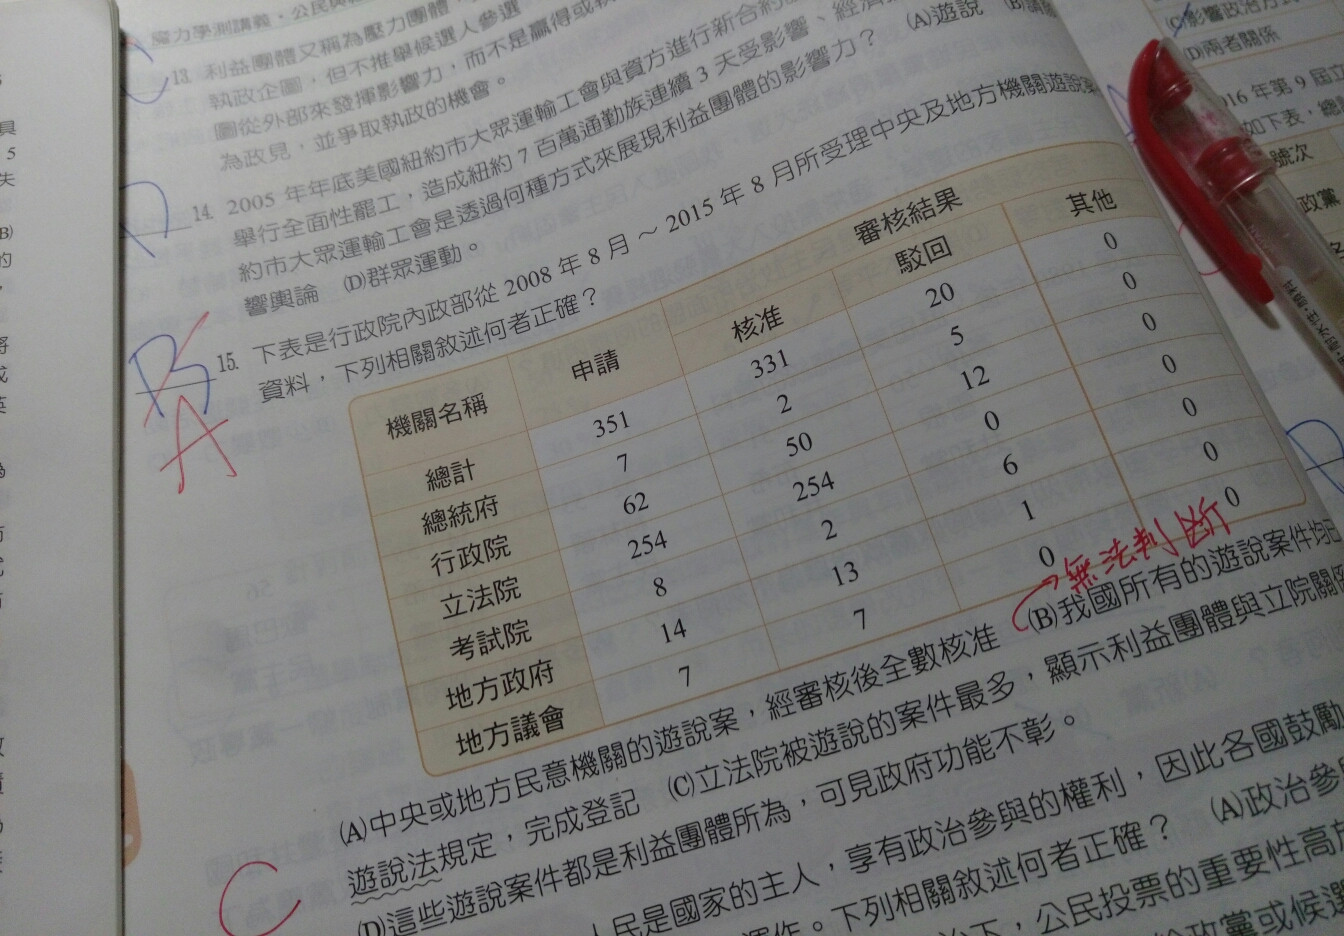 魔力學測講義．公民與
13. 利益團體又稱為壓力團體，
執政企圖，但不推舉候選人參選
圖從外部來發揮影響力，而不是贏得或執
為政見，並爭取執政的機會。
14. 2005 年年底美國紐約市大眾運輸工會與資方進行新合約
舉行全面性罷工，造成紐約 7 百萬通勤族連續 3 天受影響、經濟
約市大眾運輸工會是透過何種方式來展現利益團體的影響力？ (A)遊說 (B)
響輿論 (D)群眾運動。
B
A
15. 下表是行政院內政部從 2008 年 8 月～2015 年 8 月所受理中央及地方機關遊說案
資料，下列相關敘述何者正確？
機關名稱 申請 審核結果
核准 駁回 其他
總計 351 331 20 0
總統府 7 2 5 0
行政院 62 50 12 0
立法院 254 254 0 0
考試院 8 2 6 0
地方政府 14 13 1 0
地方議會 7 7 0 0
無法判斷
(A)中央或地方民意機關的遊說案，經審核後全數核准 (B)我國所有的遊說案件均
遊說法規定，完成登記 (C)立法院被遊說的案件最多，顯示利益團體與立院關
(D)這些遊說案件都是利益團體所為，可見政府功能不彰。
C
人民是國家的主人，享有政治參與的權利，因此各國鼓勵
運作。下列相關敘述何者正確？ (A)政治參
治下，公民投票的重要性高
政黨或候選
(C)影響政治方式
(D)兩者關係
016 年第 9 屆立
如下表，總
號次
政黨